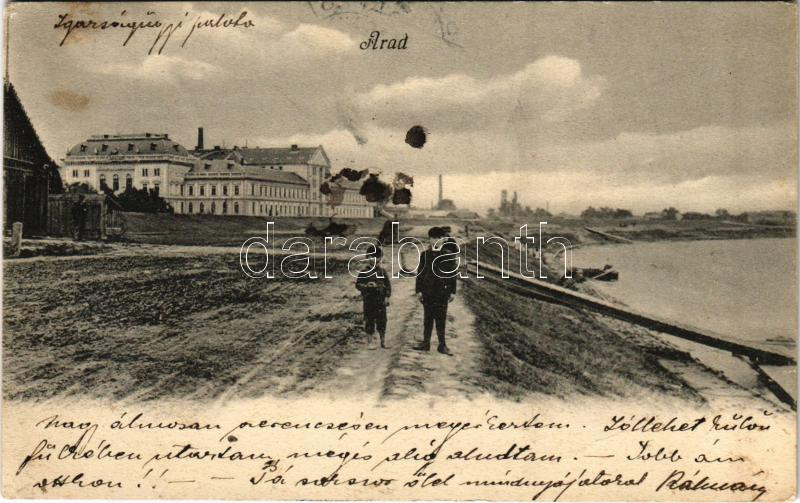 Igazságügyi palota
Arad
darabanth
nagy álmosan szerencsésen megérkeztem. Jóllehet külön
fülkében utaztam, mégis alig aludtam. — Jobb ám
otthon !! — Pá sarsos ölel mindnyájatokat Kálmán